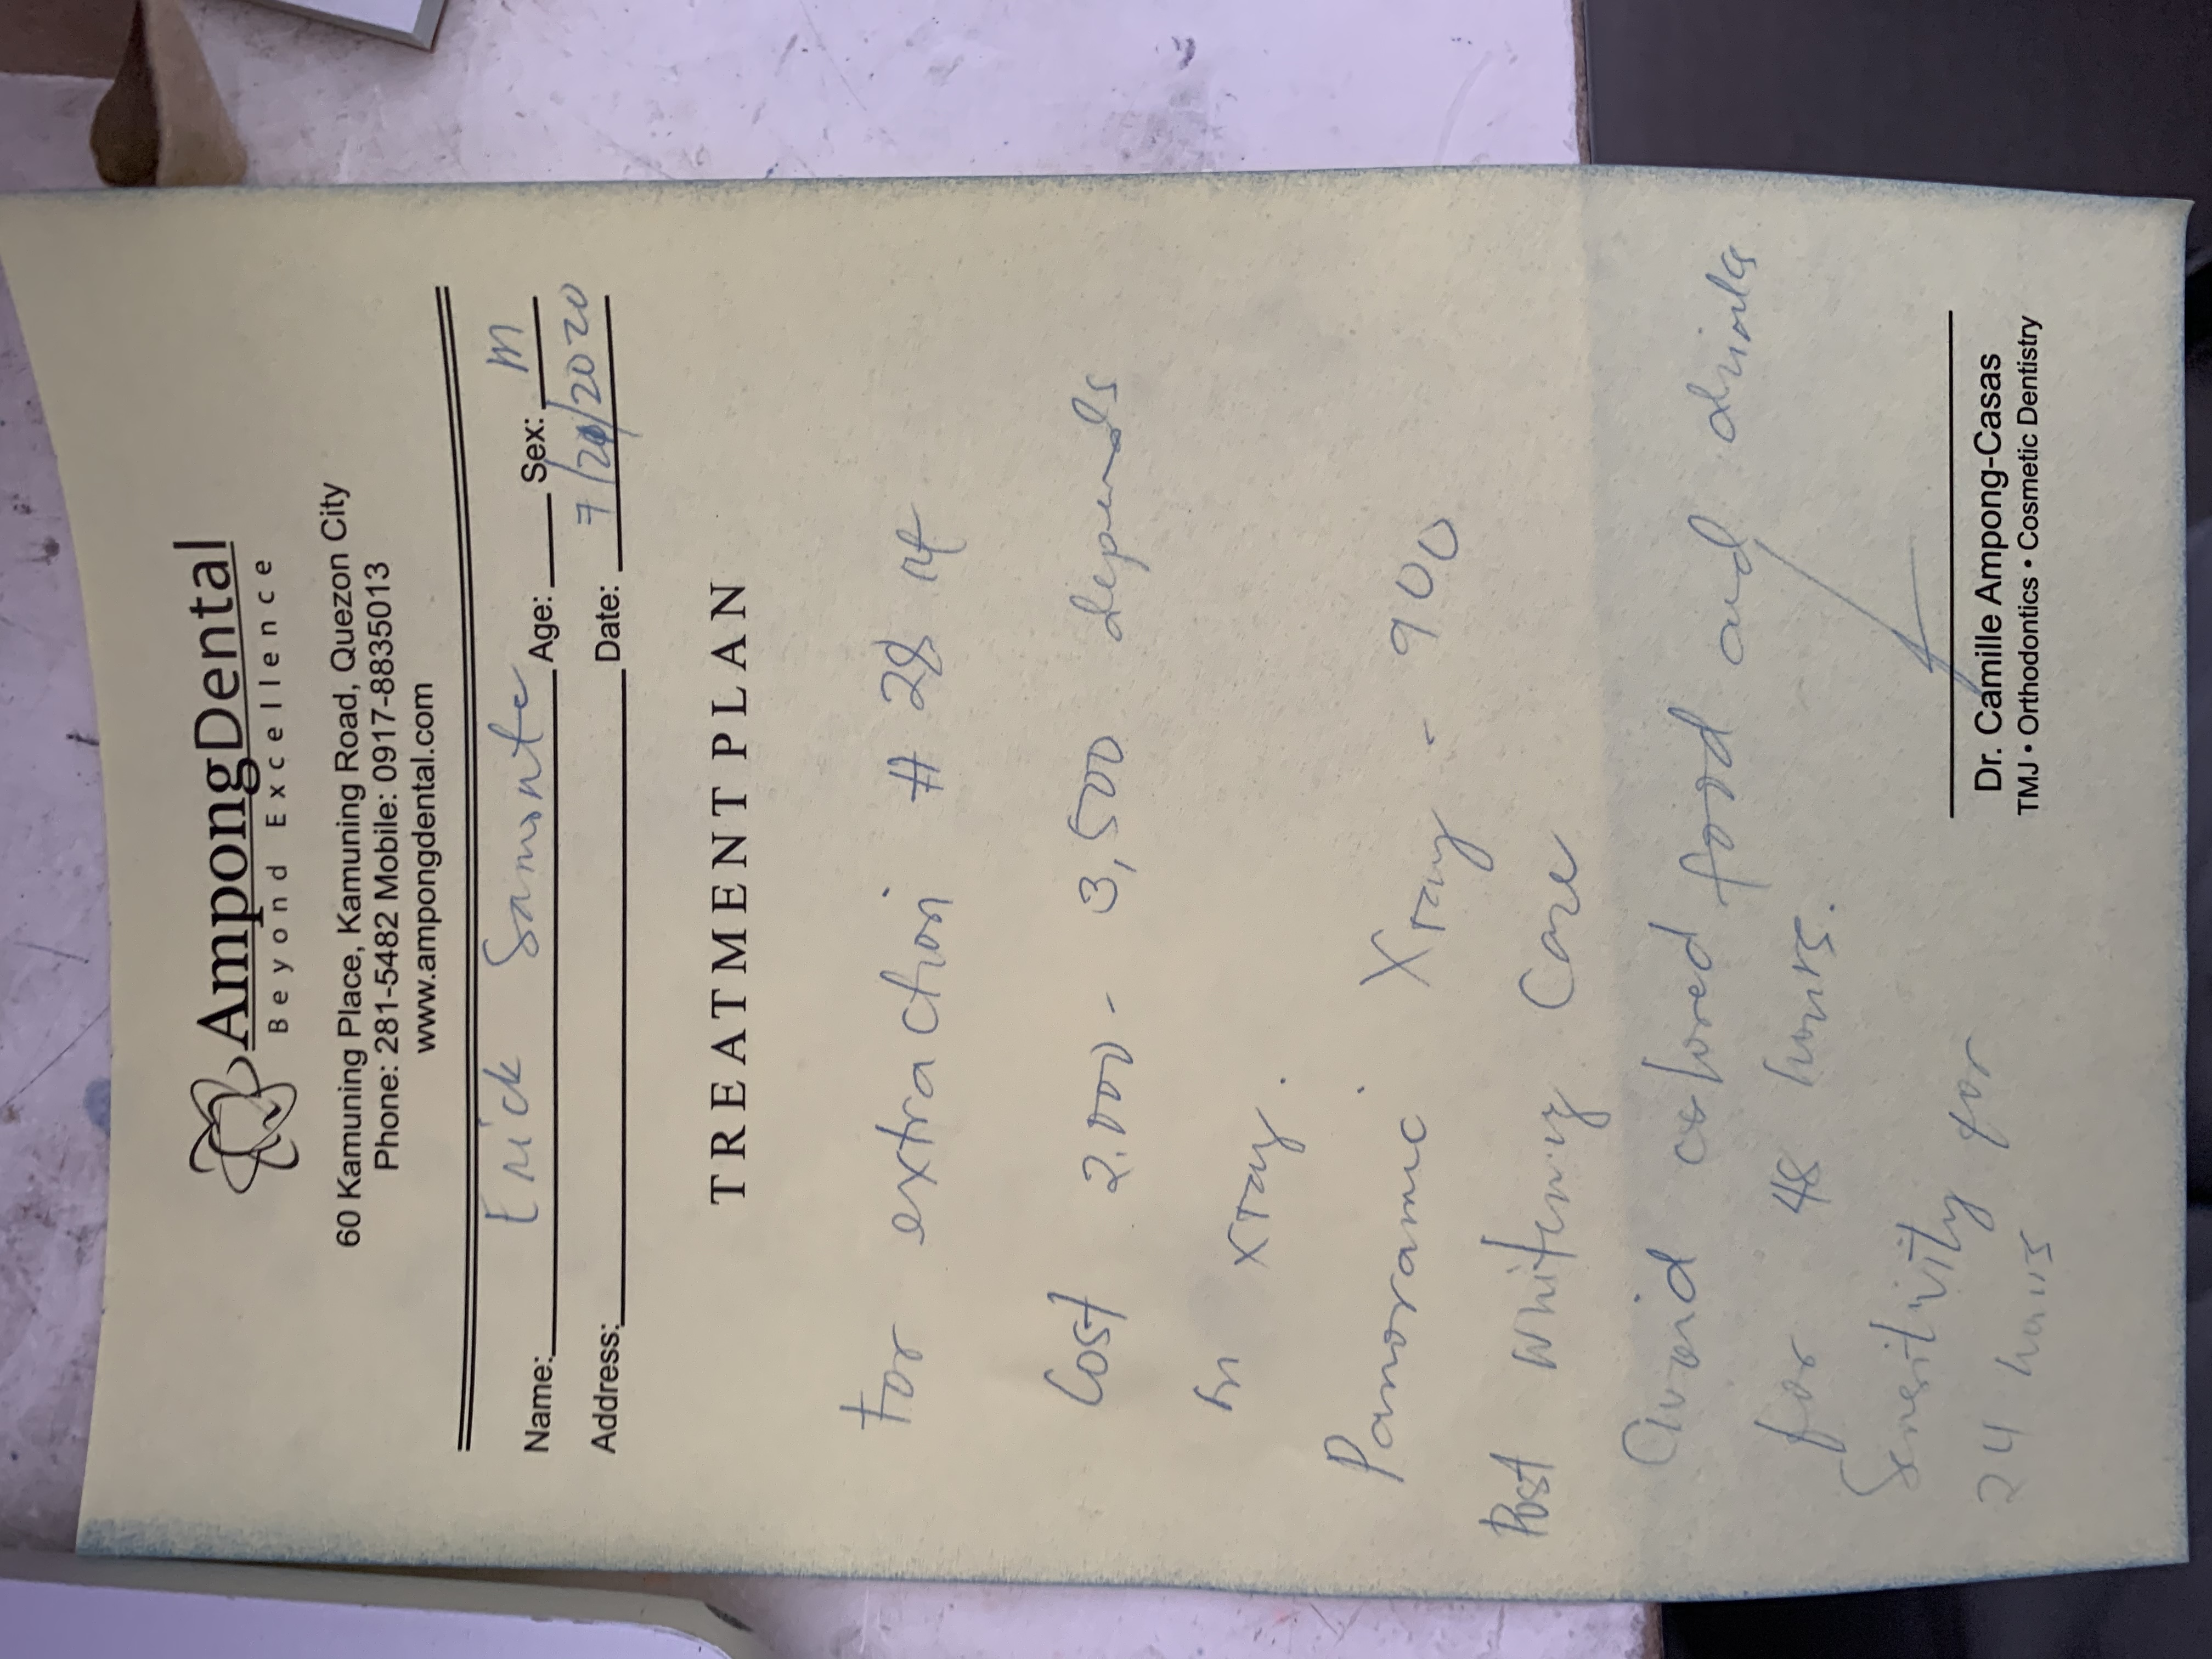 AmpongDental
Beyond Excellence
60 Kamuning Place, Kamuning Road, Quezon City
Phone: 281-5482 Mobile: 0917-8835013
www.ampongdental.com
Name: Erick Samonte Age: Sex: M
Address: Date: 7/21/2020
TREATMENT PLAN
For extraction # 28
Cost 2.000 - 3,500 depends
on xray.
Panoramic Xray - 900
Post Whitening Care
Avoid colored food and drinks
for 48 hours.
Sensitivity for
24 hours
Dr. Camille Ampong-Casas
TMJ • Orthodontics • Cosmetic Dentistry